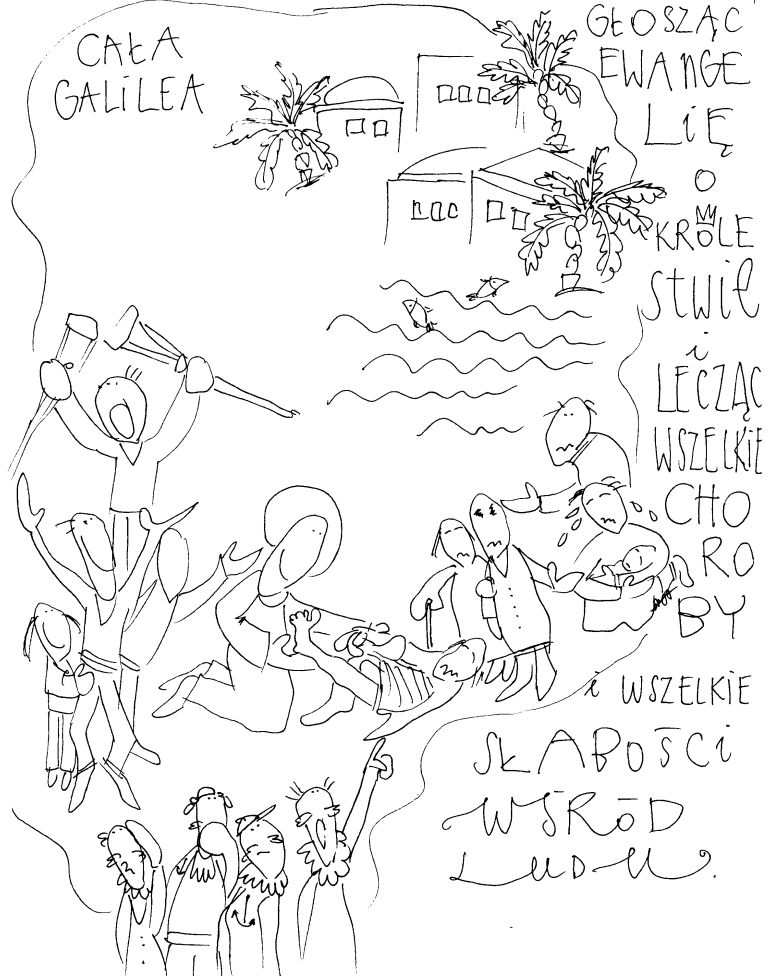 CAŁA
GALiLEA
GŁOSZĄC
EWANGE
LiĘ
O
KRÓLE
stwie
i
LECZĄC
WSZELKiE
CHO
RO
BY
i WSZELKiE
SŁABOŚCi
WŚRÓD
LUDU.